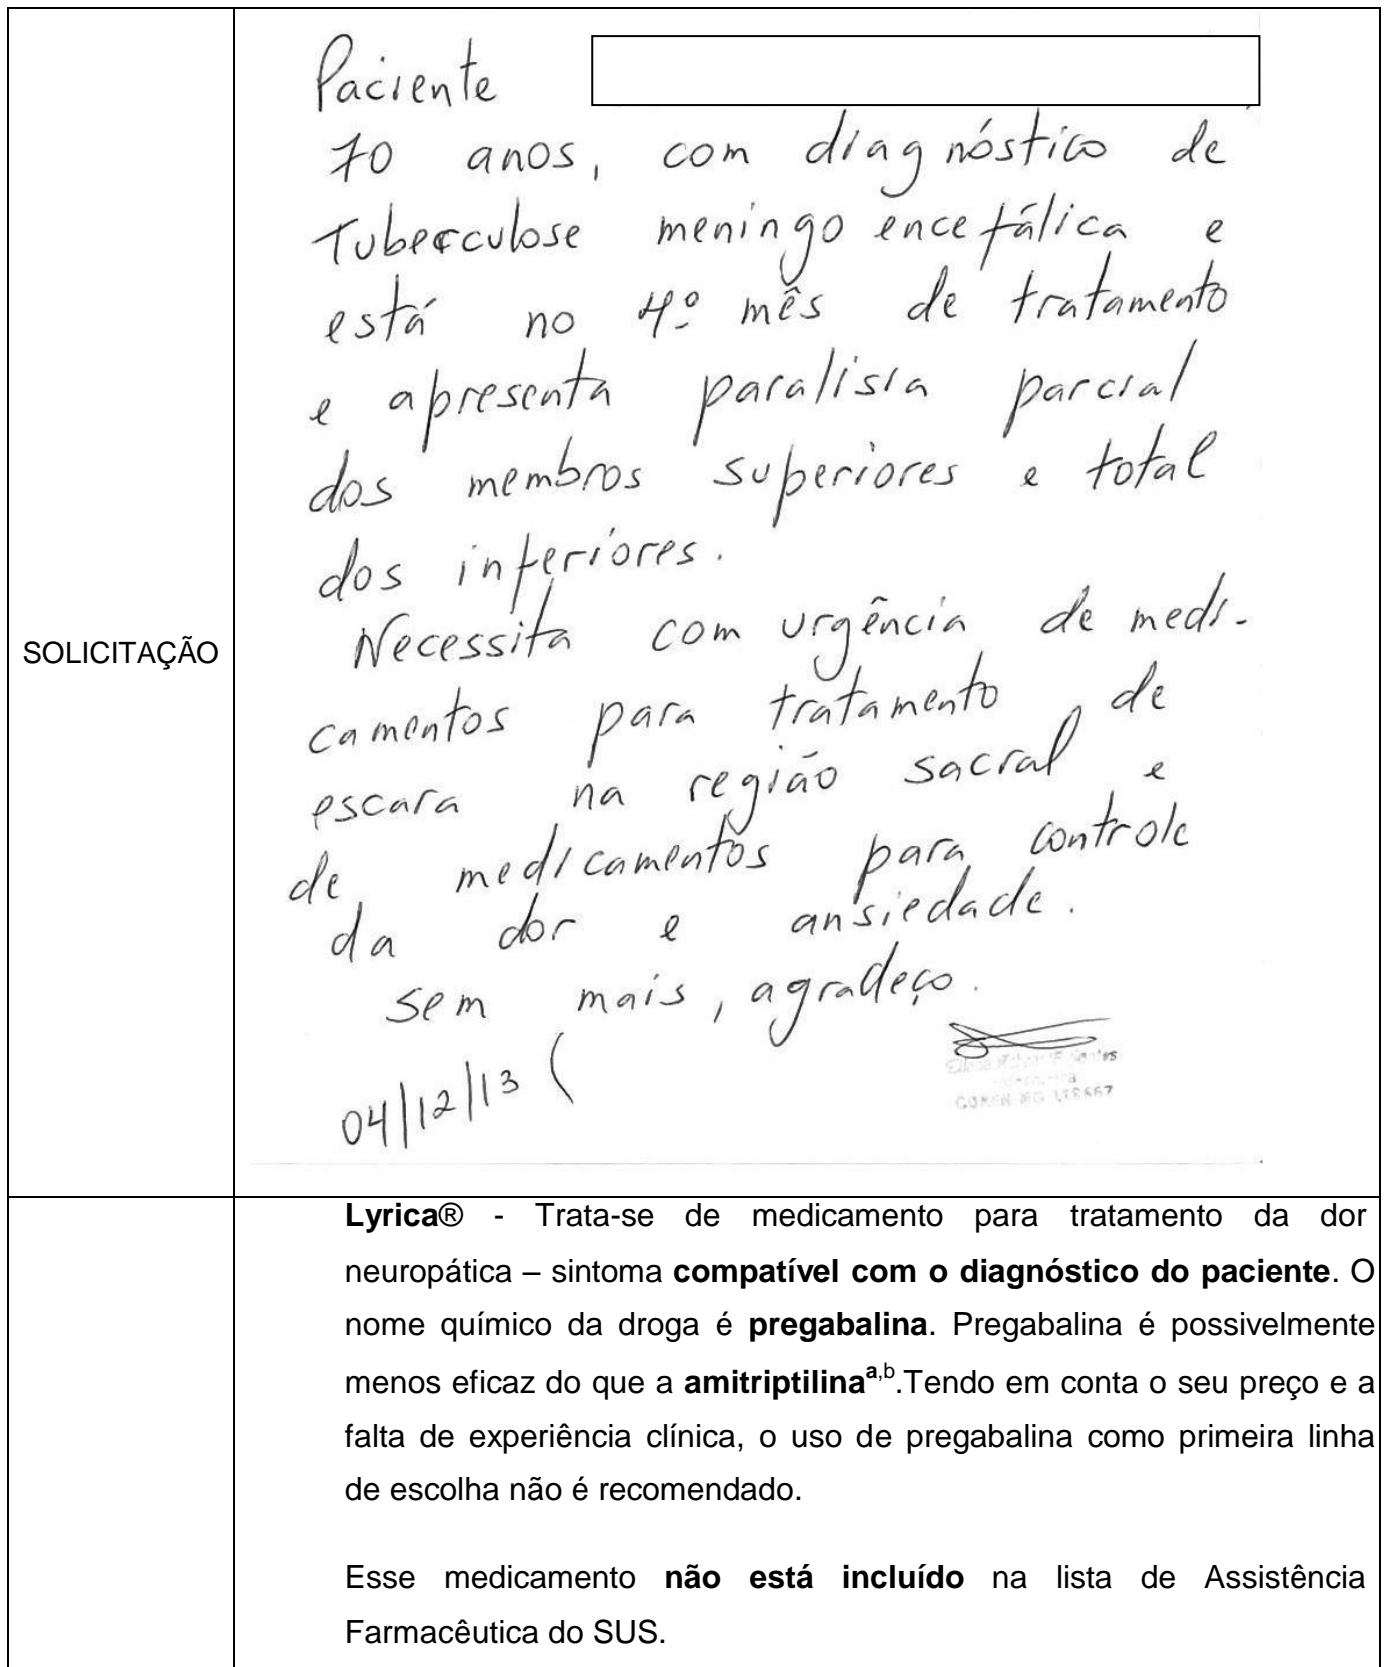 Paciente
70 anos, com diagnóstico de
Tuberculose meningo encefálica e
está no 4º mês de tratamento
e apresenta paralisia parcial
dos membros superiores e total
dos inferiores.
Necessita com urgência de medi-
SOLICITAÇÃO
camentos para tratamento de
escara na região sacral e
de medicamentos para controle
da dor e ansiedade.
Sem mais, agradeço.
04/12/13 (
COREN MG
Lyrica® - Trata-se de medicamento para tratamento da dor
neuropática – sintoma compatível com o diagnóstico do paciente. O
nome químico da droga é pregabalina. Pregabalina é possivelmente
menos eficaz do que a amitriptilina a,b.Tendo em conta o seu preço e a
falta de experiência clínica, o uso de pregabalina como primeira linha
de escolha não é recomendado.
Esse medicamento não está incluído na lista de Assistência
Farmacêutica do SUS.